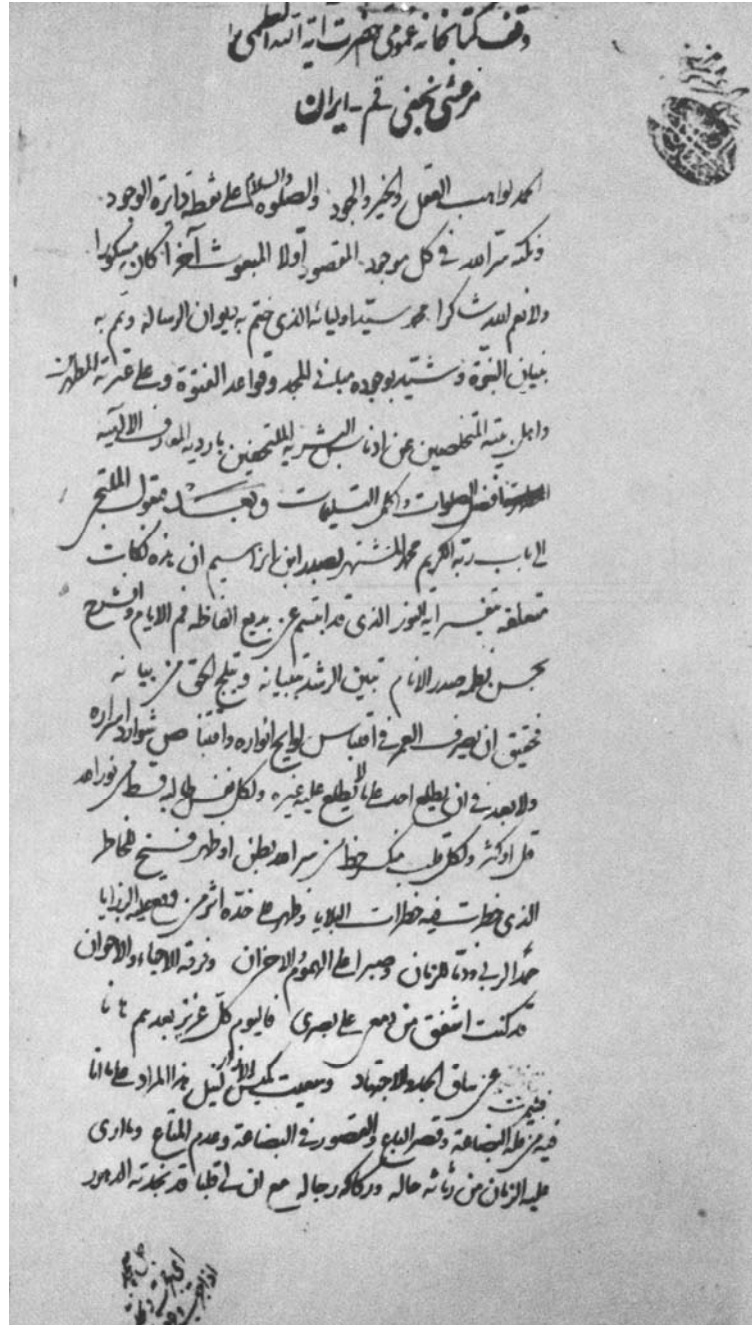 وقف کتابخانه عمومی حضرت آیة الله العظمی
مرعشی نجفی قم - ایران
الحمد لواهب العقل والخیر والجود والصلوة والسلام علی نقطة دایرة الوجود
ونکتة سر الله فی کل موجود المقصود اولا المبعوث آخرا کان مشکورا
ولانعم الله شاکرا محمد سید اولیائه الذی ختم به دیوان الرسالة وتم به
بنیان النبوة وشید بوجوده مبانی المجد وقواعد الفتوة وعلی عترته المطهرین
واهل بیته المتخلصین عن ادناس البشریة الملتحفین باردیة المعارف الالهیة
افضل الصلوات واکمل التسلیمات وبعد فیقول الملتجی
الی باب ربه الکریم محمد المشتهر بصدر ابن ابراهیم ان هذه نکات
متعلقة بتفسیر آیة النور الذی قد ابتسم عن بدیع الفاظه فم الایام وانشرح
بحسن نظمه صدر الانام تبین الرشد بتبیانه وتبلج الحق من بیانه
تحقیق ان یصرف العمر فی اقتباس لوایح انواره واقتناص شوارد اسراره
ولا بعد فی ان یطلع احد علی ما لا یطلع علیه غیره ولکل نفس طالبة قسط من نور الله
قل او کثر ولکل قلب حظ من سر الله بطن او ظهر فسنح للخاطر
الذی خطرت فیه خطرات البلایا وظهر علی خده اثر من الرزایا
حمدا لربی وذما للزمان وصبرا علی الهموم والاحزان وفرقة الاحباء والاخوان
قد کنت اشفق من دمعی علی بصری فالیوم کل عزیز بعدهم هانا
عن ساق الجد والاجتهاد وسعیت لنیل هذا المراد علی ما انا
فیه من قلة البضاعة وقصر الباع والقصور فی الصناعة وعدم المتاع وما اری
علیه الزمان من رثاثة حاله ورکاکة رجاله مع ان لی قلبا قد نجذته الدهور